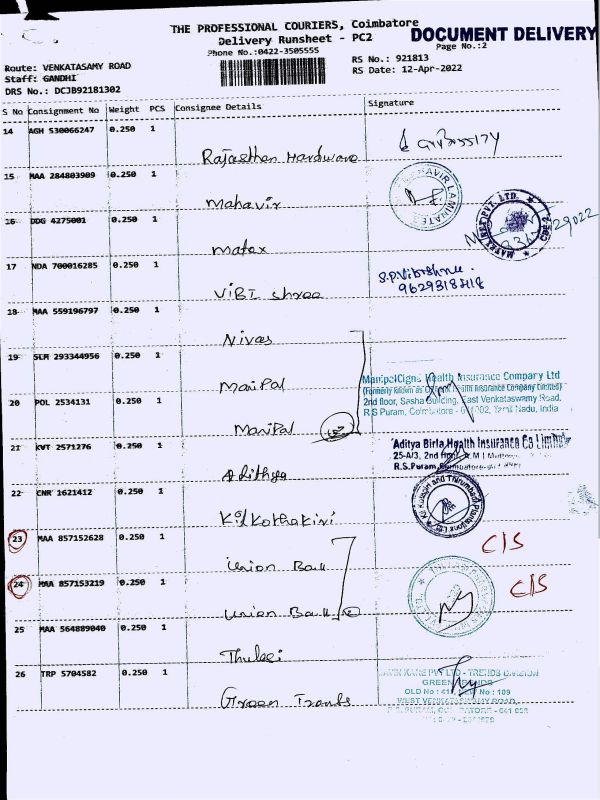 THE PROFESSIONAL COURIERS, Coimbatore
Delivery Runsheet - PC2
DOCUMENT DELIVERY
Phone No.:0422-3505555
Page No.:2
Route: VENKATASAMY ROAD
RS No.: 921813
Staff: GANDHI
RS Date: 12-Apr-2022
DRS No.: DCJB92181302
S No Consignment No Weight PCS Consignee Details Signature
14 AGH 530066247 0.250 1
Rajasthan Hardware
15 MAA 284803909 0.250 1
Mahavir
16 DDG 4275001 0.250 1
Matex
17 NDA 700016285 0.250 1
ViBI Shree
S.P.Vibishree.
9629318418
18 MAA 559196797 0.250 1
Nivas
19 SLM 293344956 0.250 1
ManiPal
ManipalCigna Health Insurance Company Ltd
2nd floor, Sasha Building, East Venkataswamy Road,
R S Puram, Coimbatore - 641002, Tamil Nadu, India
20 POL 2534131 0.250 1
ManiPal
21 KVT 2571276 0.250 1
Adithya
Aditya Birla Health Insurance Co Limited
25-A/3, 2nd floor
R.S.Puram,
22 CNR 1621412 0.250 1
Kil Kothakiri
23 MAA 857152628 0.250 1
Union Bank
C/S
24 MAA 857153219 0.250 1
Union Bank
C/S
25 MAA 564889040 0.250 1
Thulasi
26 TRP 5704582 0.250 1
Green Trends
PVT LTD - TRENDS DIVISION
GREEN TRENDS
OLD No : 41, NEW No : 109
WEST VENKATASWAMY ROAD,